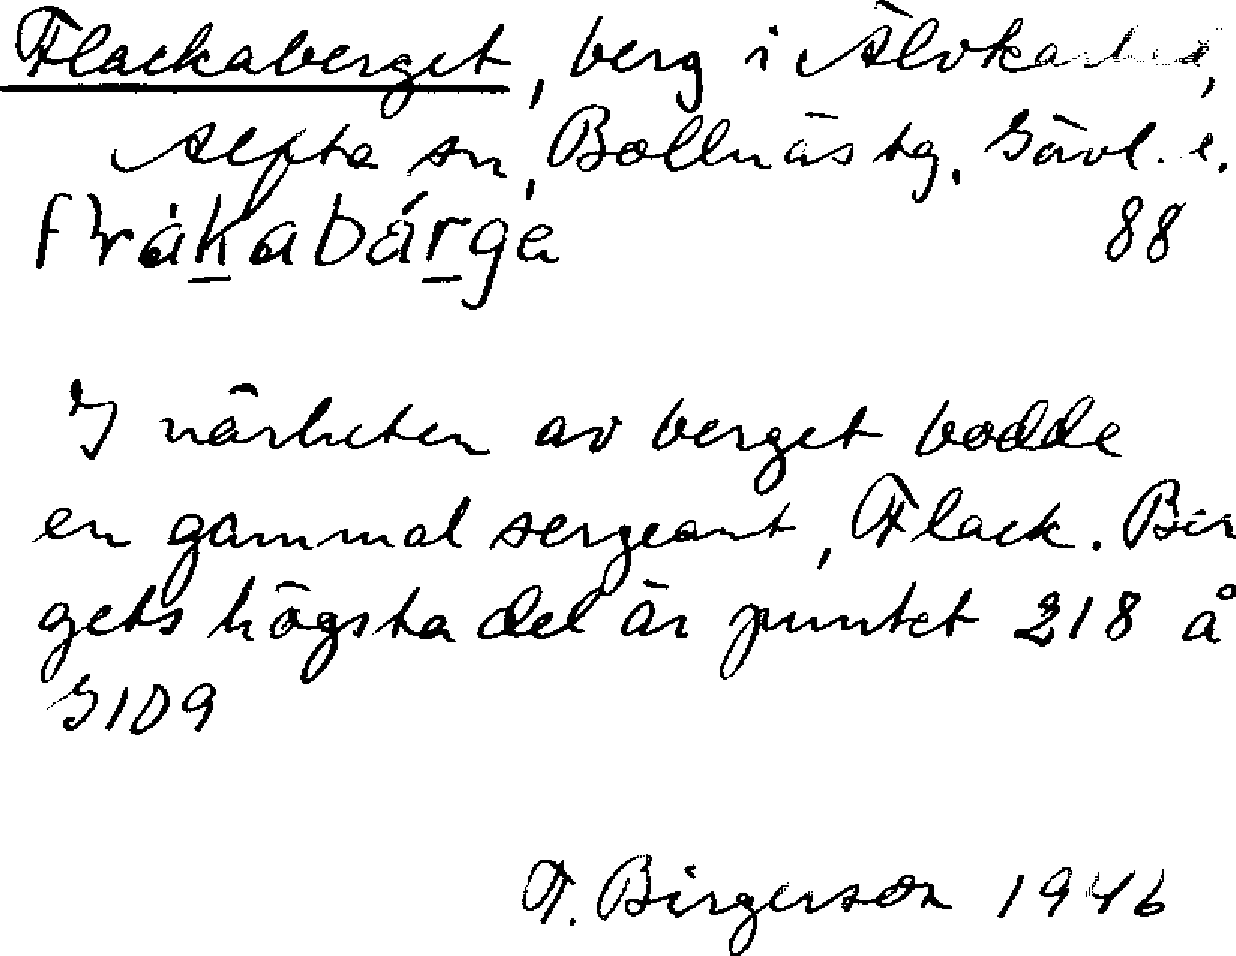 Flackaberget, berg i Älvkarhed,
Alfta sn, Bollnäs tg, Gävl. l.
88
I närheten av berget bodde
en gammal sergeant, Flack. Ber
gets högsta del är puntet 218 å
G109
F. Birgerson 1946